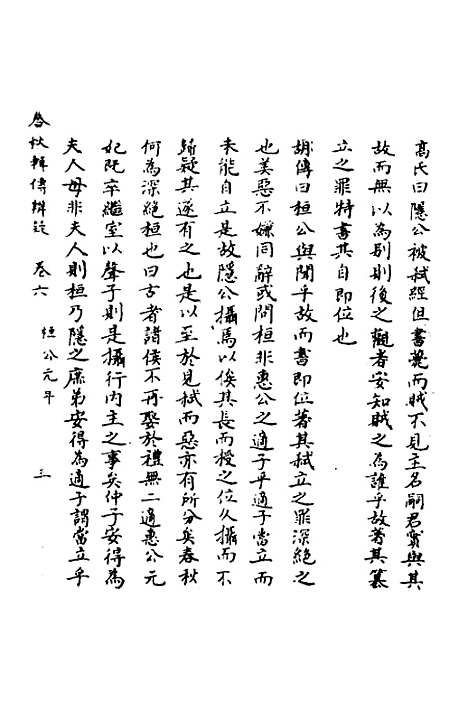 高氏曰隱公被弑經但書薨而賊不見主名嗣君實與其
故而無以為別則後之觀者安知賊之為誰乎故著其篡
立之罪特書其自即位也
胡傳曰桓公與聞乎故而書即位著其弑立之罪深絕之
也美惡不嫌同辭或問桓非惠公之適子乎適子當立而
未能自立是故隱公攝焉以俟其長而授之位久攝而不
歸疑其遂有之也是以至於見弑而惡亦有所分矣春秋
何為深絕桓也曰古者諸侯不再娶於禮無二適惠公元
妃既卒繼室以聲子則是攝行內主之事矣仲子安得為
夫人母非夫人則桓乃隱之庶弟安得為適子謂當立乎
春秋輯傳辨疑 卷六 桓公元年 三